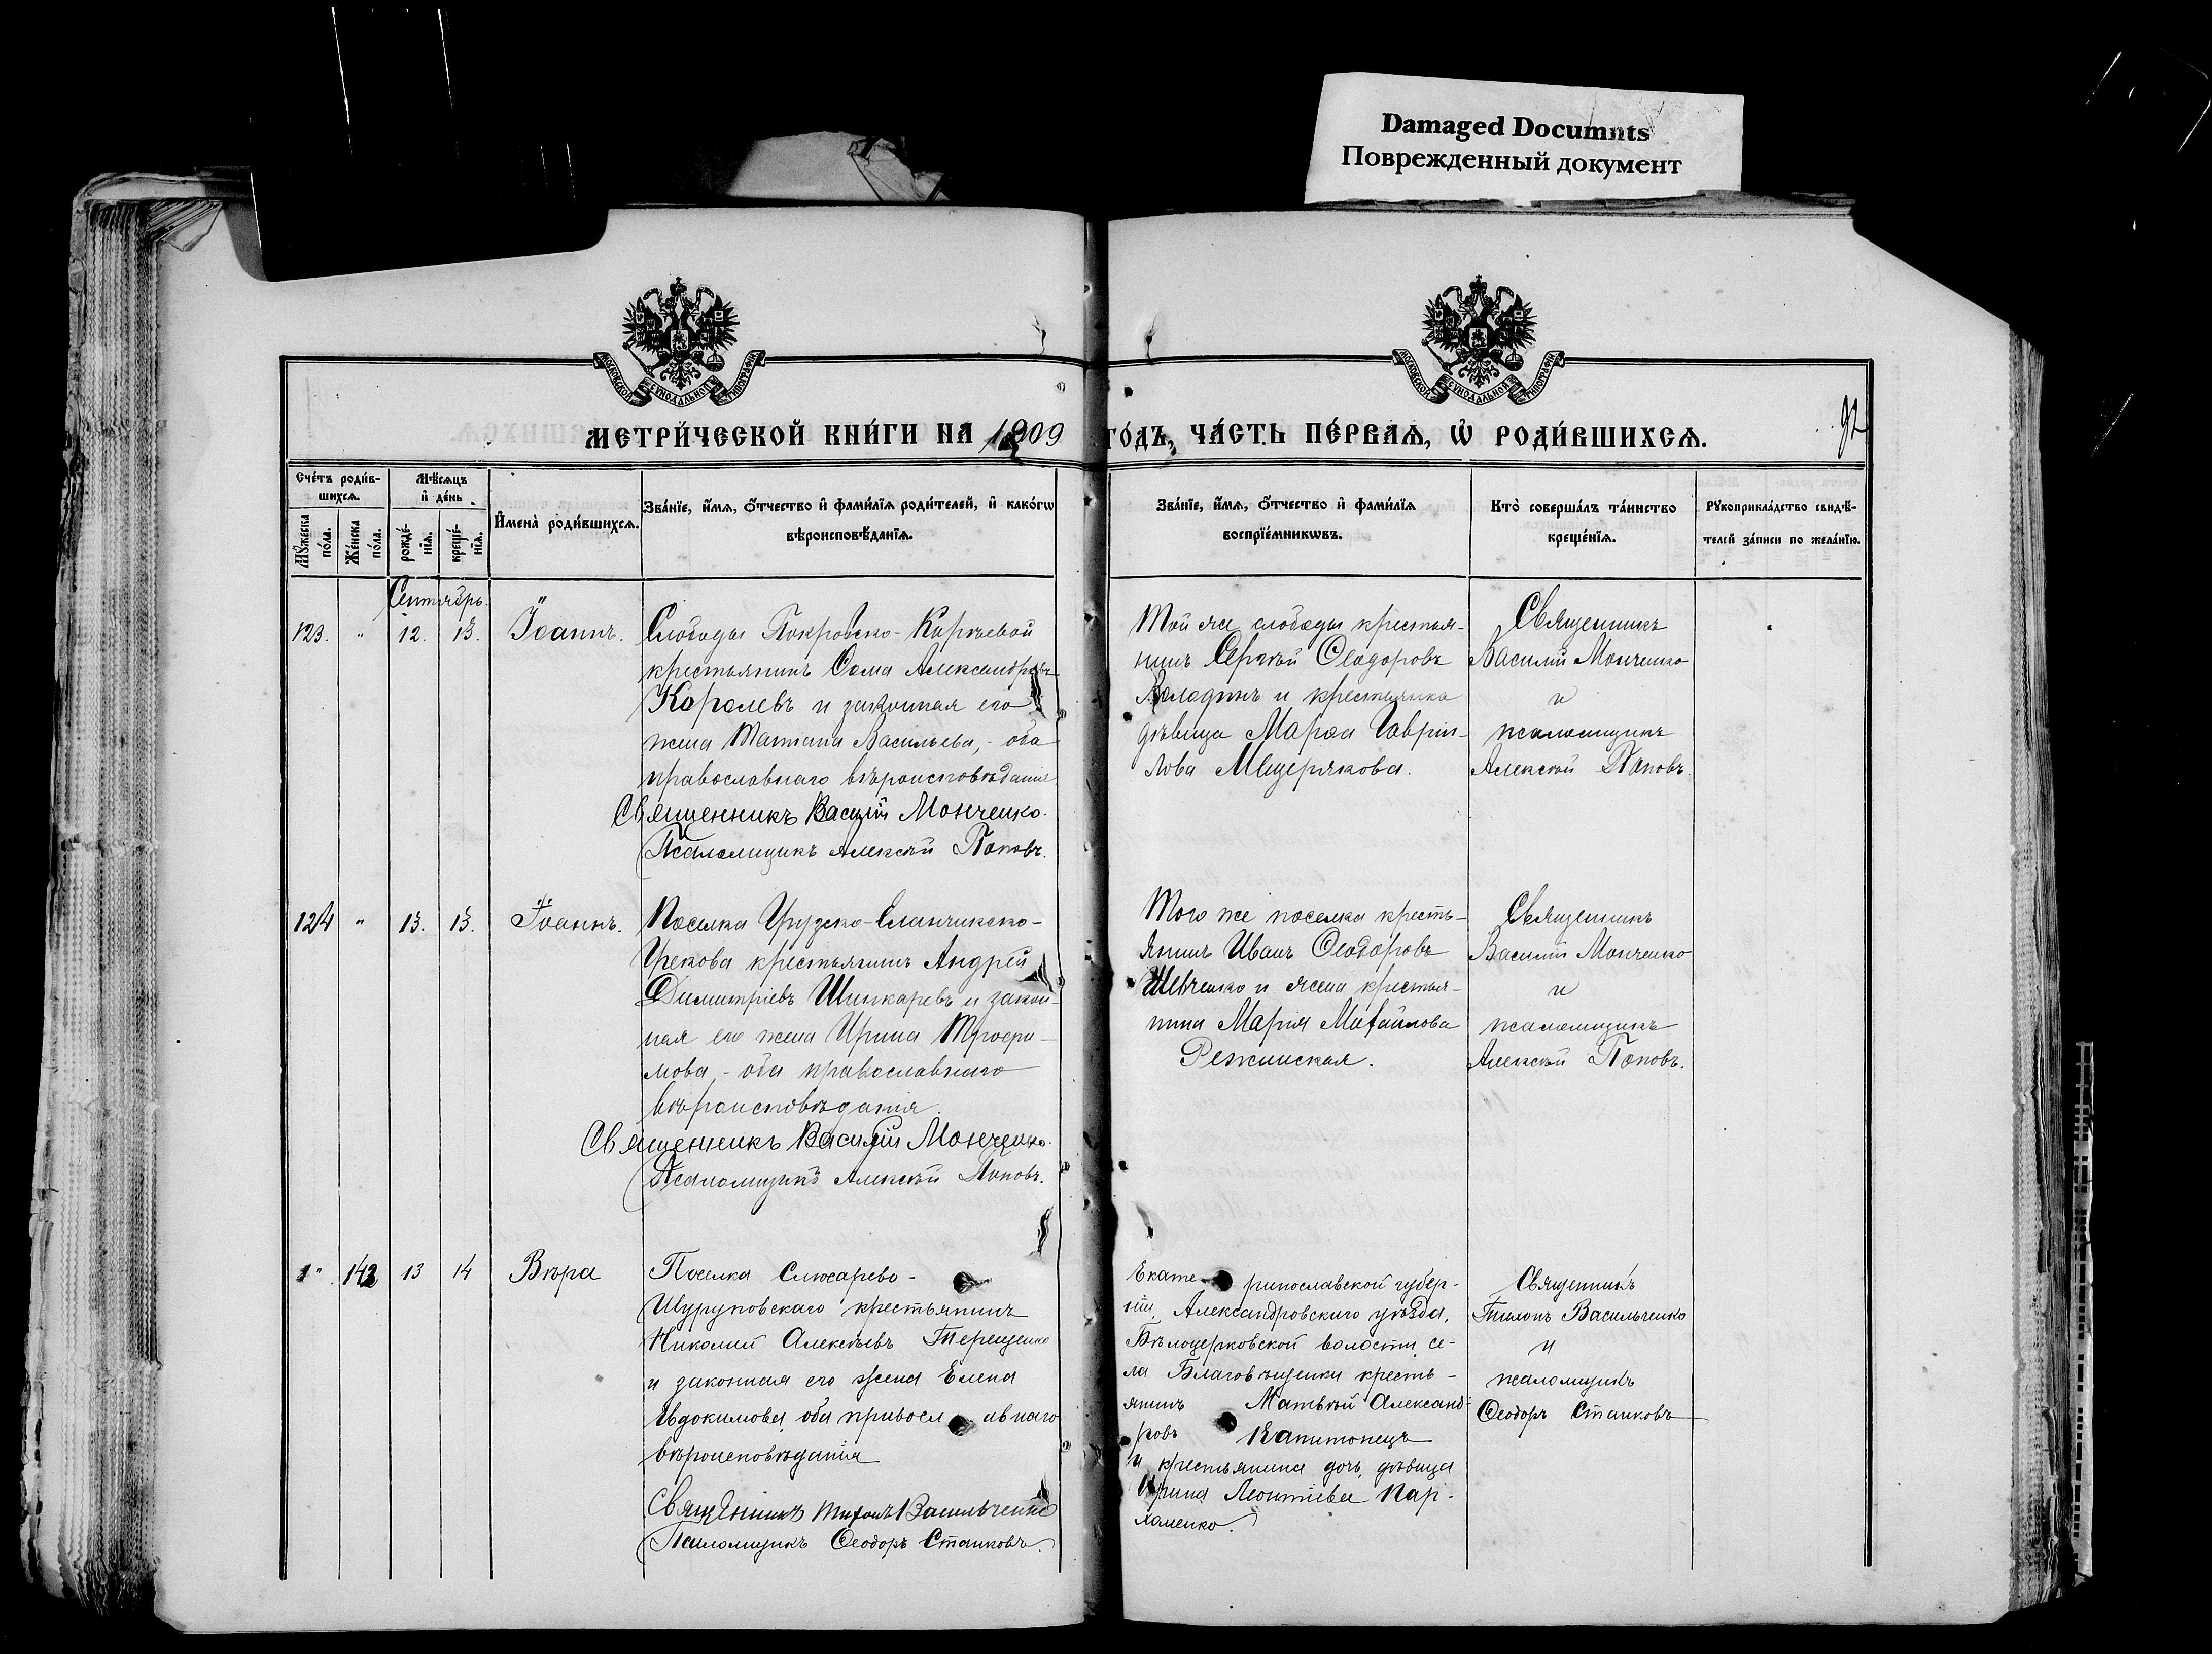 Damaged Documnts
Поврежденный документ
МОСКОВСКОЙ СѴНОДАЛЬНОЙ ТИПОГРАФІИ
МОСКОВСКОЙ СѴНОДАЛЬНОЙ ТИПОГРАФІИ
92
МЕТРИ́ЧЕСКОЙ КНИ́ГИ НА 1909
ГО́ДЪ, ЧА́СТЬ ПЕ́РВАЯ, Ѡ РОДИ́ВШИХСЯ.
Сче́тъ роди́в-
шихся.
Мѣ́сяцъ
и҆ де́нь
Мꙋ́жеска по́ла.
Же́нска по́ла.
рожде́-
нїя.
креще́-
нїя.
И҆мена̀ роди́вшихся.
Зва́нїе, и҆́мя, ѻ҆́тчество и҆ фами́лїя роди́телей, и҆ како́гѡ
вѣроисповѣ́данїя.
Зва́нїе, и҆́мя, ѻ҆́тчество и҆ фами́лїя
воспрїе́мникѡвъ.
Кто̀ соверша́лъ та́инство
креще́нїя.
Рꙋкоприкла́дство свидѣ́-
телей за́писи по жела́нїю.
Сентябрь.
123. " 12. 13. Іоаннъ.
Слободы Покровско-Киреевой
крестьянинъ Ѳома Александровъ
Королевъ и законная его
жена Татіана Васильева, - оба
православнаго вѣроисповѣданія
Священникъ Василій Монченко.
Псаломщикъ Алексѣй Поповъ.
Той же слободы крестья-
нинъ Сергѣй Ѳеодоровъ
Володинъ и крестьянка
дѣвица Марѳа Гаврі-
лова Мещерякова.
Священникъ
Василій Монченко
и
псаломщикъ
Алексѣй Поповъ.
124 " 13. 13. Іоаннъ.
Поселка Грузско-Еланчикско-
Грекова крестьянинъ Андрей
Димитріевъ Шинкаревъ и закон-
ная его жена Ирина Трофи-
мова, - оба православнаго
вѣроисповѣданія.
Священникъ Василій Монченко.
Псаломщикъ Алексѣй Поповъ.
Того же поселка кресть-
янинъ Иванъ Ѳеодоровъ
Шевченко и жена крестья-
нина Марія Михайлова
Режинская.
Священникъ
Василій Монченко
и
псаломщикъ
Алексѣй Поповъ.
" 142 13 14 Вѣра
Поселка Слюсарево-
Шуруповскаго крестьянинъ
Николай Алексѣевъ Терещенко
и законная его жена Елена
Евдокимова, оба православнаго
вѣроисповѣданія
Священникъ Тихонъ Васильченко
Псаломщикъ Ѳеодоръ Станковъ.
Екатеринославской губер-
ніи, Александровскаго уѣзда,
Бѣлоцерковской волости, се-
ла Благовѣщенки кресть-
янинъ Матвѣй Александ-
ровъ Капитонецъ
и крестьянина дочь, дѣвица
Ирина Леонтіева Пар-
хоменко.
Священникъ
Тихонъ Васильченко
и
псаломщикъ
Ѳеодоръ Станковъ